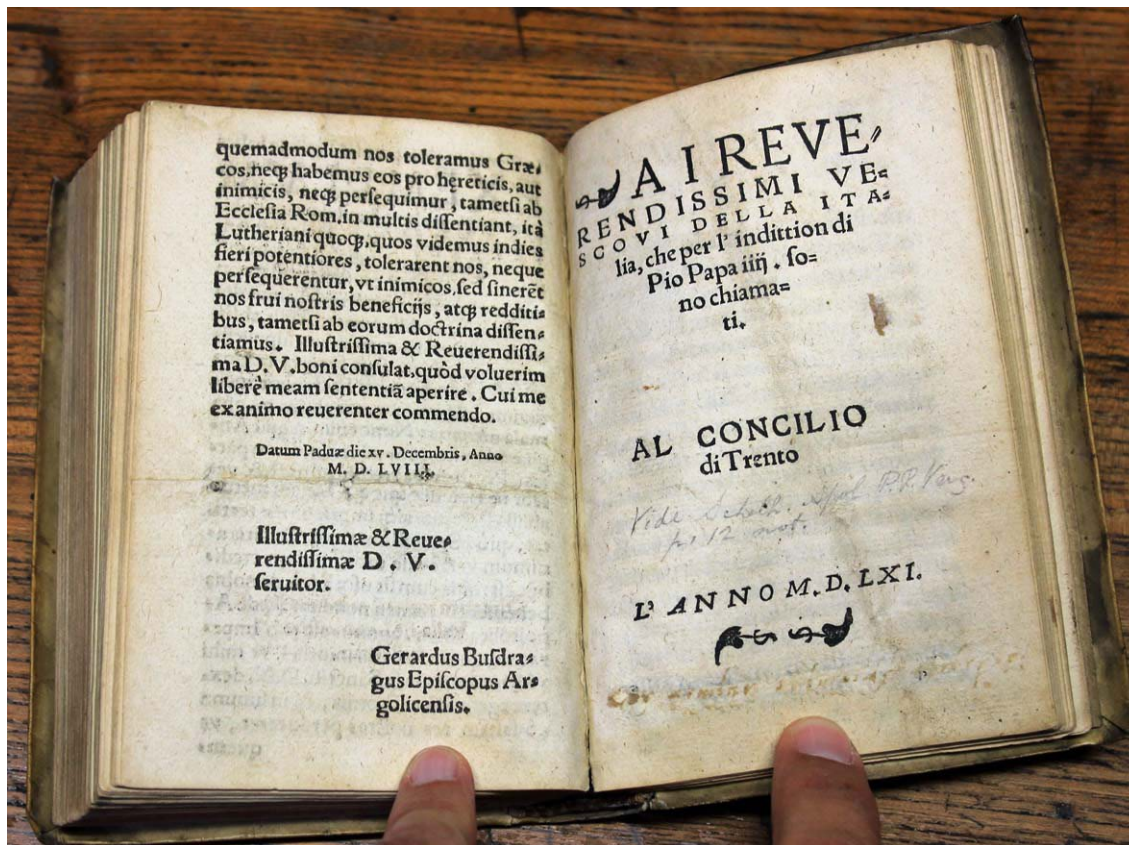 quemadmodum nos toleramus Græ⸗
cos, neqꝫ habemus eos pro hęreticis, aut
inimicis, neqꝫ perſequimur, tametſi ab
Eccleſia Rom. in multis diſſentiant, ità
Lutheriani quoqꝫ, quos videmus indies
fieri potentiores, tolerarent nos, neque
perſequerentur, vt inimicos, ſed ſinerẽt
nos frui noſtris beneficijs, atqꝫ redditi⸗
bus, tametſi ab eorum doctrina diſſen⸗
tiamus. Illuſtriſſima & Reuerendiſſi⸗
ma D. V. boni conſulat, quòd voluerim
liberè meam ſententiã aperire. Cui me
ex animo reuerenter commendo.
Datum Paduæ die xv. Decembris, Anno
M. D. LVIII.
Illuſtriſſimæ & Reue⸗
rendiſſimæ D. V.
ſeruitor.
Gerardus Buſdra⸗
gus Epiſcopus Ar⸗
golicenſis.
AI REVE⸗
RENDISSIMI VE⸗
SCOVI DELLA ITA⸗
lia, che per l' indittion di
Pio Papa iiij. ſo⸗
no chiama⸗
ti.
AL CONCILIO
di Trento
Vide Schelh. P.P. Verg.
p. 12 not.
L' ANNO M. D. LXI.